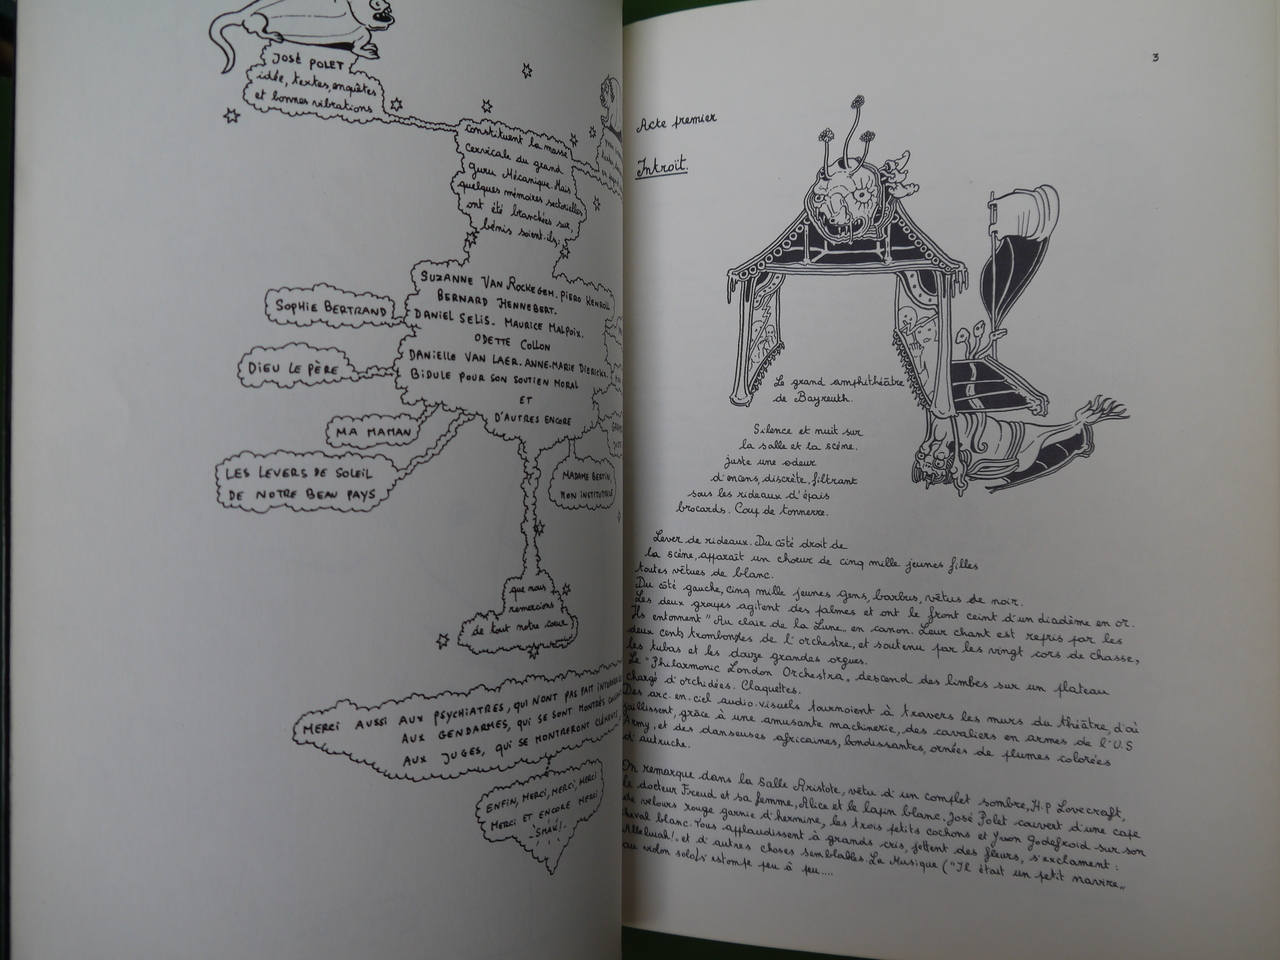 JOSÉ POLET
idée, textes, enquêtes
et bonnes vibrations
constituent la masse
cervicale du grand
Guru Mécanique. Mais
quelques mémoires sectorielles
ont été branchées sur,
bénis soient-ils:
SUZANNE VAN ROCKEGEM. PIERO KENROLL
BERNARD HENNEBERT.
DANIEL SELIS. MAURICE MALPOIX.
ODETTE COLLON
DANIELLE VAN LAER. ANNE-MARIE DIERICKX.
BIDULE POUR SON SOUTIEN MORAL
ET
D'AUTRES ENCORE
SOPHIE BERTRAND
DIEU LE PÈRE
MA MAMAN
LES LEVERS DE SOLEIL
DE NOTRE BEAU PAYS
MADAME BERTIN,
MON INSTITUTRICE
que nous
remercions
de tout notre cœur
MERCI AUSSI AUX PSYCHIATRES, QUI NONT PAS FAIT
AUX GENDARMES, QUI SE SONT MONTRÉS
AUX JUGES, QUI SE MONTRERONT CLÉMENTS
ENFIN, MERCI, MERCI, MERCI
MERCI ET ENCORE MERCI
SMAK!
3
Acte premier
Introït.
Le grand amphithéâtre
de Bayreuth.
Silence et nuit sur
la salle et la scène.
juste une odeur
d'encens, discrète, filtrant
sous les rideaux d'épais
brocards. Coup de tonnerre.
Lever de rideaux. Du côté droit de
la scène, apparaît un chœur de cinq mille jeunes filles
toutes vêtues de blanc.
Du côté gauche, cinq mille jeunes gens, barbus, vêtus de noir.
Les deux groupes agitent des palmes et ont le front ceint d'un diadème en or.
Ils entonnent "Au clair de la Lune" en canon. Leur chant est repris par les
deux cents trombones de l'orchestre, et soutenu par les vingt cors de chasse,
les tubas et les douze grandes orgues.
Le "Philarmonic London Orchestra" descend des limbes sur un plateau
chargé d'orchidées. Claquettes.
Des arc-en-ciel audio-visuels tournoient à travers les murs du théâtre, d'où
jaillissent, grâce à une amusante machinerie, des cavaliers en armes de l'U.S
Army, et des danseuses africaines, bondissantes, ornées de plumes colorées
d'autruche.
On remarque dans la Salle Aristote, vêtu d'un complet sombre, H.P Lovecraft,
le docteur Freud et sa femme, Alice et le lapin blanc, José Polet couvert d'une cape
de velours rouge garnie d'hermine, les trois petits cochons et Yvon Godefroid sur son
cheval blanc. Tous applaudissent à grands cris, jettent des fleurs, s'exclament :
Alleluiah!, et d'autres choses semblables. La Musique ("Il était un petit navire"
au violon solo) s'estompe peu à peu....